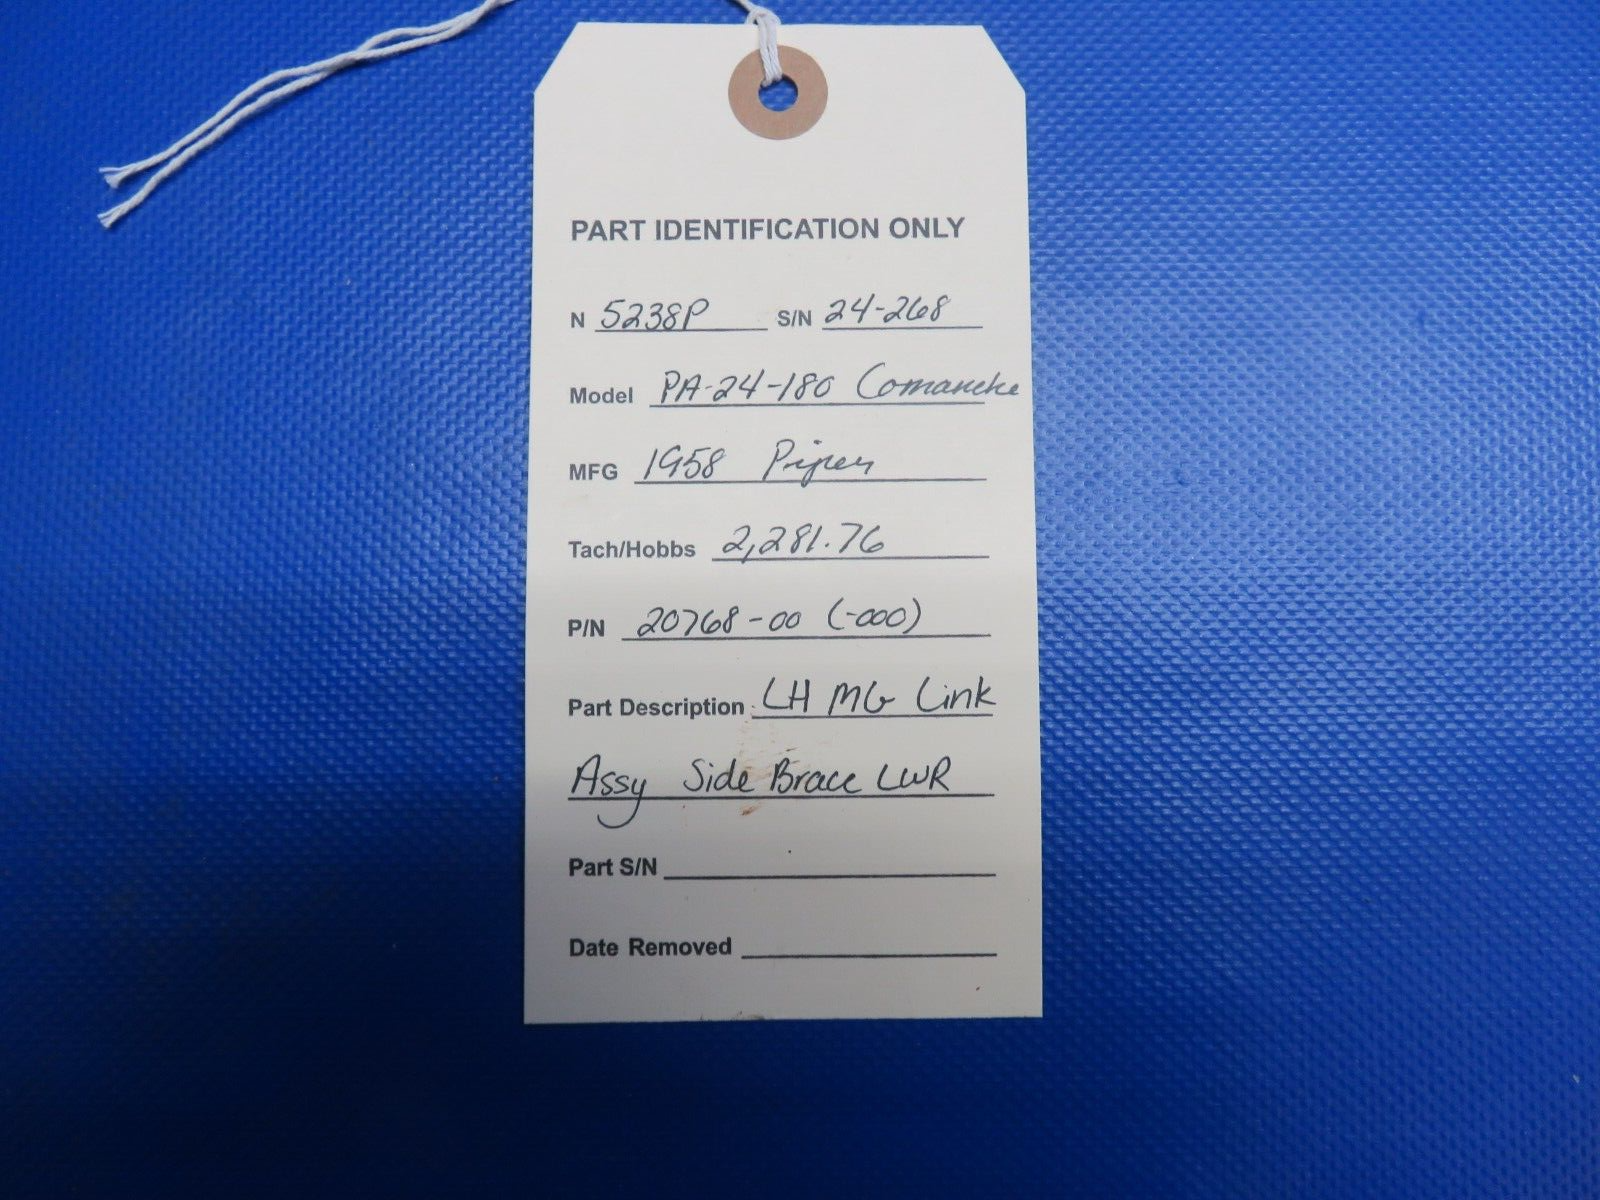 PART IDENTIFICATION ONLY
N 5238P S/N 24-268
Model PA-24-180 Comanche
MFG 1958 Piper
Tach/Hobbs 2,281.76
P/N 20768-00 (-000)
Part Description LH MG Link
Assy Side Brace LWR
Part S/N
Date Removed